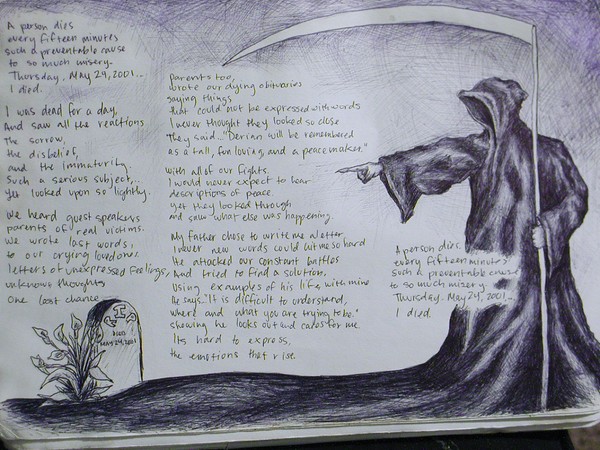 A person dies
every fifteen minutes
such a preventable cause
to so much misery.
Thursday, May 24, 2001...
I died.
I was dead for a day,
And saw all the reactions
The sorrow,
the disbelief,
and the Immaturity.
Such a serious subject,..
Yet looked upon so lightly.
We heard guest speakers
parents of real victims.
We wrote last words,
to our crying loved ones
letters of unexpressed feelings,
unknown thoughts
One last chance
I
DIED
MAY 24, 2001
Parents too,
wrote our dying obituaries
saying things
that could not be expressed with words
I never thought they looked so close
They said..."Derian will be remembered
as a tall, fun loving, and a peace maker."
With all of our fights
I would never expect to hear
descriptions of peace.
Yet they looked through
and saw what else was happening.
My father chose to write me a letter.
I never new words could hit me so hard
He attacked our constant battles
And tried to find a solution.
Using examples of his life with mine
He says. "It is difficult to understand,
where and what you are trying to be."
showing he looks out and cares for me.
Its hard to express,
the emotions that rise.
A person dies.
every fifteen minutes
Such a preventable cause
to so much misery
Thursday. May 24, 2001...
I died.